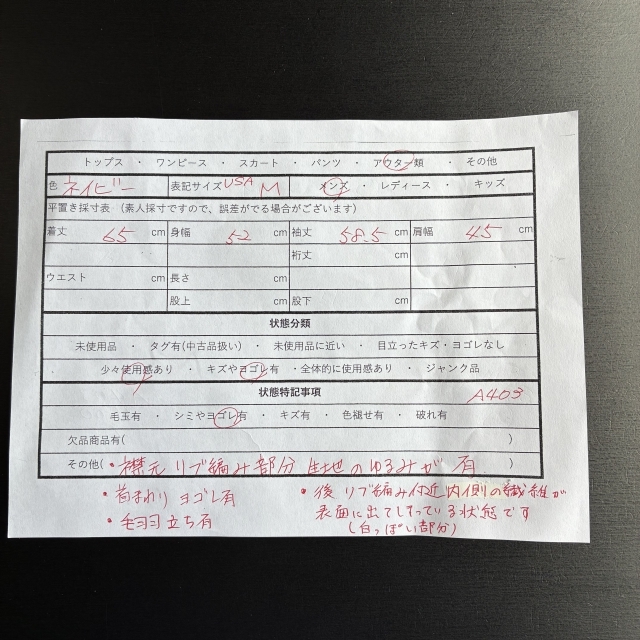 トップス ・ ワンピース ・ スカート ・ パンツ ・ アウター類 ・ その他
色 ネイビー 表記サイズ USA M メンズ ・ レディース ・ キッズ
平置き採寸表 (素人採寸ですので、誤差がでる場合がございます)
着丈 65 cm 身幅 52 cm 袖丈 58.5 cm 肩幅 45 cm
裄丈 cm
ウエスト cm 長さ cm
股上 cm 股下 cm
状態分類
未使用品 ・ タグ有(中古品扱い) ・ 未使用品に近い ・ 目立ったキズ・ヨゴレなし
少々使用感あり ・ キズやヨゴレ有 ・全体的に使用感あり ・ ジャンク品
状態特記事項 A403
毛玉有 ・ シミやヨゴレ有 ・ キズ有 ・ 色褪せ有 ・ 破れ有
欠品商品有( )
その他( ・襟元 リブ編み部分 生地のゆるみが 有 )
・首まわり ヨゴレ有
・毛羽立ち有
・後 リブ編み付近 内側の繊維が
表面に出てしまっている状態です
(白っぽい部分)